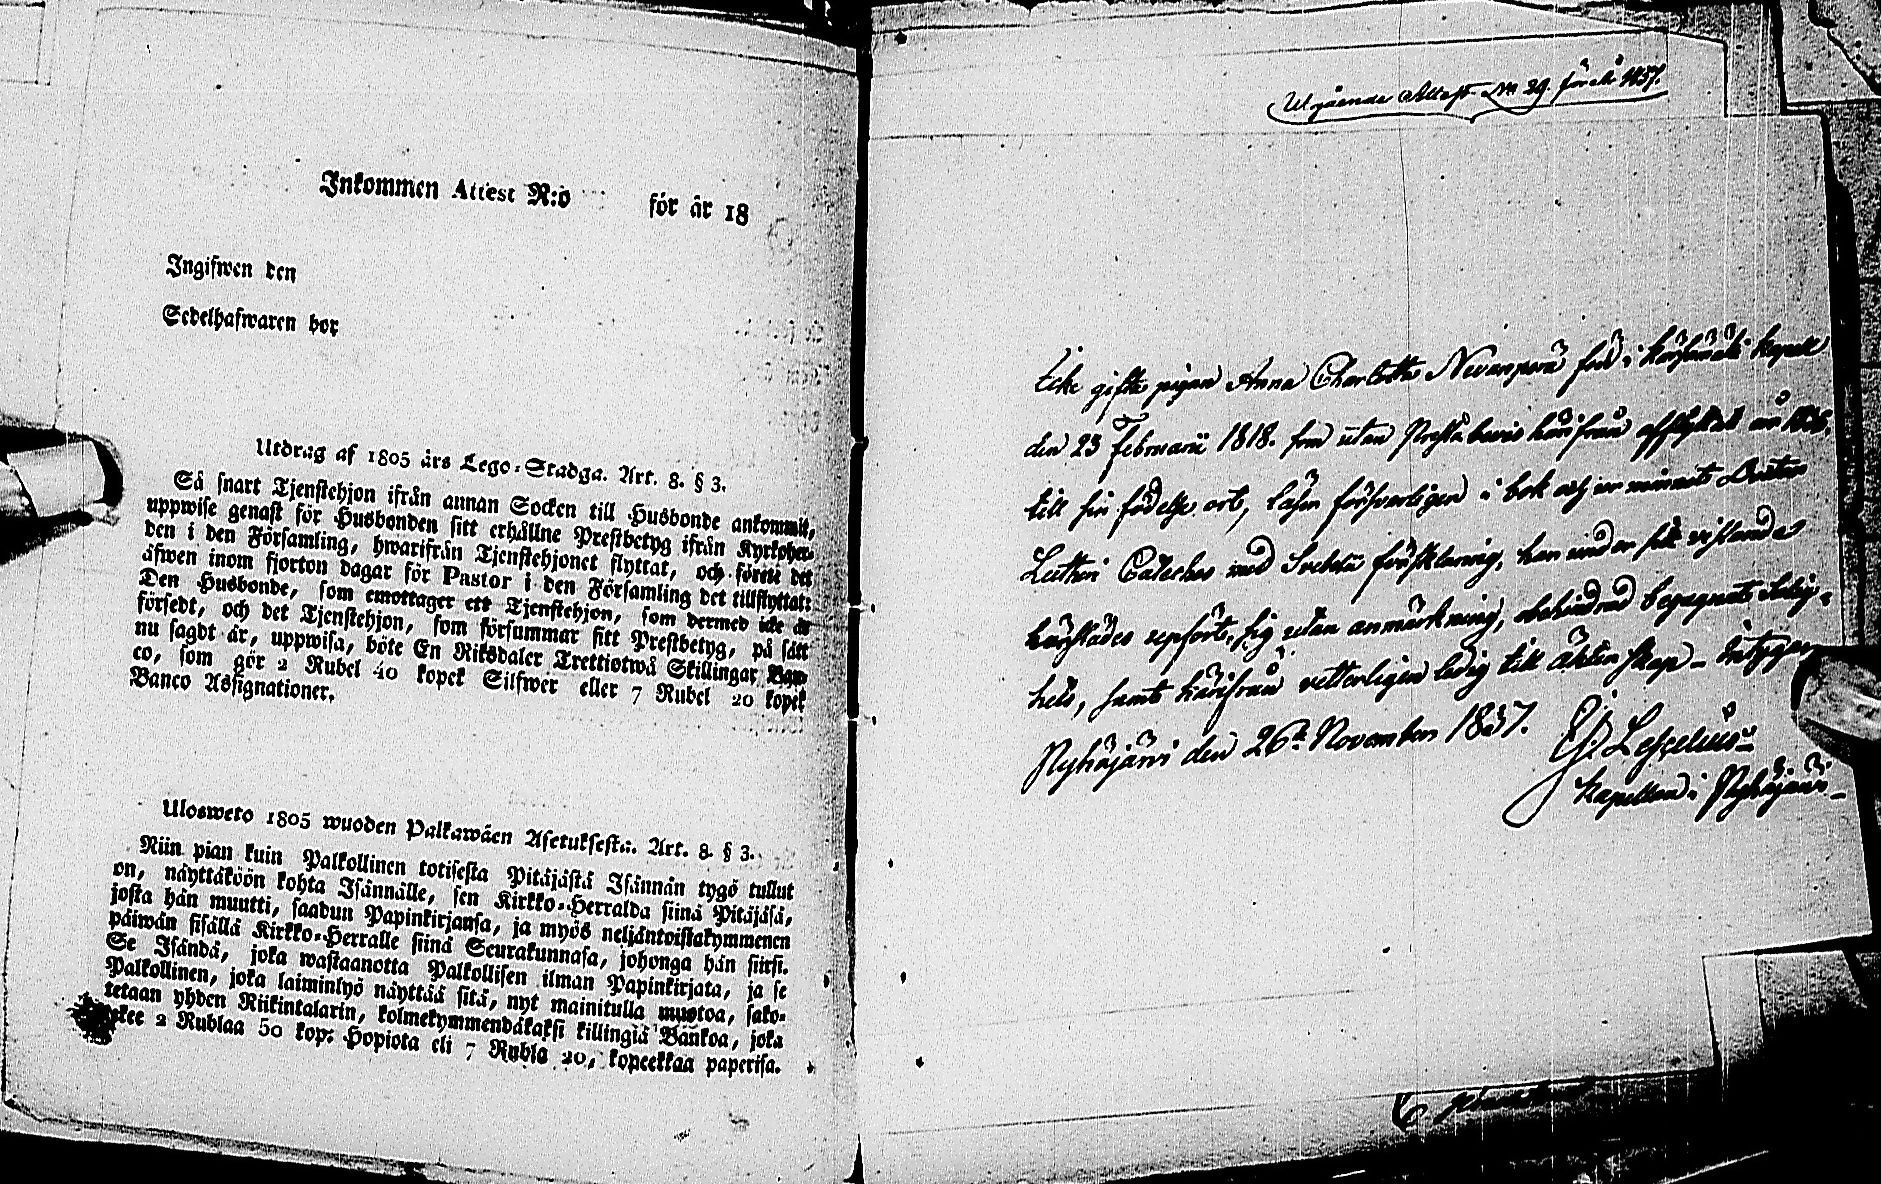 Inkommen Attest N:o för år 18
Ingifwen den
Sedelhafwaren bor
Utdrag af 1805 års Lego-Stadga. Art. 8. § 3.
Så snart Tjenstehjon ifrån annan Socken till Husbonde ankommit,
uppwise genast för Husbonden sitt erhållne Prestbetyg ifrån Kyrkoher-
den i den Församling, hwarifrån Tjenstehjonet flyttat, och förete det
äfwen inom fjorton dagar för Pastor i den Församling det tillflyttat:
Den Husbonde, som emottager ett Tjenstehjon, som dermed icke är
försedt, och det Tjenstehjon, som försummar sitt Prestbetyg, på sätt
nu sagdt är, uppwisa, böte En Riksdaler Trettiotwå Skillingar Ban-
co, som gör 2 Rubel 40 kopek Silfwer eller 7 Rubel 20 kopek
Banco Assignationer.
Ulosweto 1805 wuoden Palkawäen Asetuksesta. Art. 8. § 3.
Niin pian kuin Palkollinen totisesta Pitäjästä Isännän tygö tullut
on, näyttäköön kohta Isännälle, sen Kirkko-Herralda siinä Pitäjäsä,
josta hän muutti, saadun Papinkirjansa, ja myös neljäntoistakymmenen
päiwän sisällä Kirkko-Herralle siinä Seurakunnasa, johonga hän siirsi.
Se Isändä, joka wastaanotta Palkollisen ilman Papinkirjata, ja se
Palkollinen, joka laiminlyö näyttää sitä, nyt mainitulla muotoa, sako-
tetaan yhden Riikintalarin, kolmekymmendäkaksi killingiä Bankoa, joka
tekee 2 Rublaa 50 kop: Hopiota eli 7 Rubla 20, kopeekkaa paperisa.
Utgående Attest No 29. för år 1837.
Icke gifta pigan Anna Charlotta Nevanperä född i Kärsämäki Kapell
den 23 Februarii 1818. som utan Prestabevis härifrån afflyttat år
till sin födelse ort, läser försvarligen i bok och ur minnet Doctor
Lutheri Cateches med Svebelii förklaring, har under sitt vistande
härstädes uppfört sig utan anmärkning, obehindrad begagnat Salig-
hets, samt härifrån vetterligen ledig till äktenskap - intygar
Pyhäjärvi den 26te November 1837.
Kapellan i Pyhäjärvi -